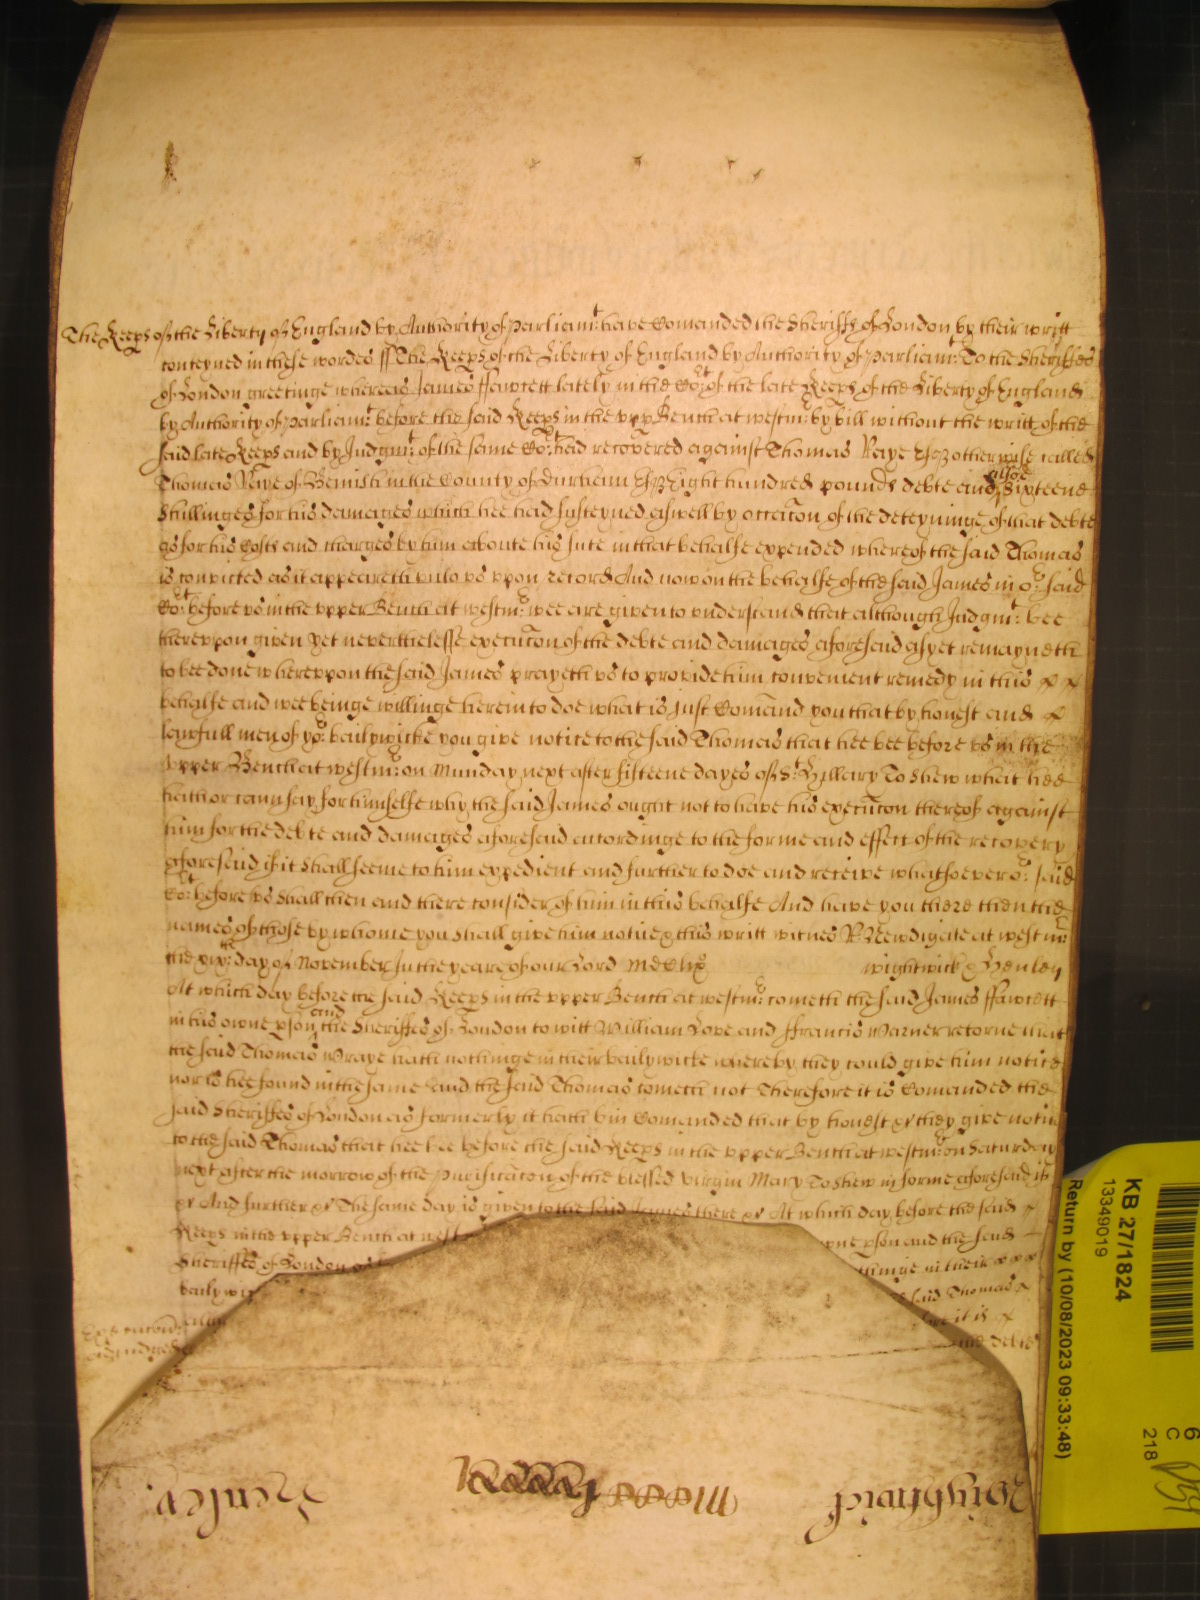 The Keeps of the Liberty of England by Authority of Parliamt: have Comanded the Sheriffs of London by their writt
conteyned in these wordes ss The Keeps of the Liberty of England by Authority of Parliamt: To the Sheriffes
of London greetinge whereas James ffawcett lately in the Cort: of the late Keeps of the Liberty of England
by Authority of Parliamt: before the said Keeps in the vpp Bench at westmr: by bill without the writt of the
said late Keeps and by Judgmt: of the same Cort: had recovered against Thomas Raye Esq otherwise called
Thomas Raye of Bemish in the County of Durham Esq Eight hundred pounds debte and alsoe Sixteene
Shillinges for his damages which hee had susteyned aswell by occacon of the deteyninge of that debte
as for his Costs and charges by him aboute his sute in that behalfe expended whereof the said Thomas
is convicted as it appeareth vnto vs vpon record And now on the behalfe of the said James in or: said
Cort: before vs in the vpper Bench at westmr: wee are given to vnderstand that although Judgmt: bee
therevpon given yet neverthelesse execucon of the debte and damages aforesaid as yet remayneth
to bee done wherevpon the said James prayeth vs to provide him convenient remedy in this
behalfe and wee beinge willinge herein to doe what is just Comand you that by honest and
lawfull men of yor: bailywicke you give notice to the said Thomas that hee bee before vs in the
vpper Bench at westmr: on Munday next after fifteene dayes of St: Hillary To shew what hee
hath or cann say for himselfe why the said James ought not to have his execucon thereof against
him for the debte and damages aforesaid accordinge to the forme and effect of the recovery
aforesaid if it shall seeme to him expedient and further to doe and receive whatsoever or: said
Cort: before vs shall then and there consider of him in this behalfe And have you there then the
names of those by whome you shall give him notice & this writt witnes R: Newdigate at westmr:
the xixth: day of November In the yeare of our Lord MDCLIX wightwick & Henley
At which day before the said Keeps in the vpper Bench at westmr: cometh the said James ffawcett
in his owne pson and the Sheriffes of London to witt William Love and ffrancis Warner retorne that
the said Thomas Wraye hath nothinge in their bailywicke whereby they could give him notice
nor is hee found in the same And the said Thomas cometh not Therefore it is Comanded the
said Sheriffes of London as formerly it hath bin Comanded that by honest &c they give notice
to the said Thomas that hee bee before the said Keeps in the vpper Bench at westmr: on Saturday
next after the morrow of the Purificacon of the blessed Virgin Mary To shew in forme aforesaid if
&c And further &c The same day is given to the said James there &c At which day before the said
Keeps in the vpper Bench at west owne pson and the said
Sheriffes of London as thinge in their
baily said Thomas
it is
the debte
Wightwick
Henley
KB 27/1824
13349019
Return by (10/08/2023 09:33:48)
6
C
218